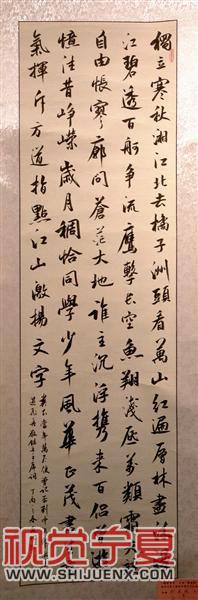 獨立寒秋湘江北去橘子洲頭看萬山紅遍層林盡染
江碧透百舸爭流鷹擊長空魚翔淺底萬類霜天競
自由悵寥廓問蒼茫大地誰主沉浮攜來百侶曾遊
憶往昔崢嶸歲月稠恰同學少年風華正茂書
氣揮斥方遒指點江山激揚文字
視覺宁夏
WWW.SHIJUENX.COM